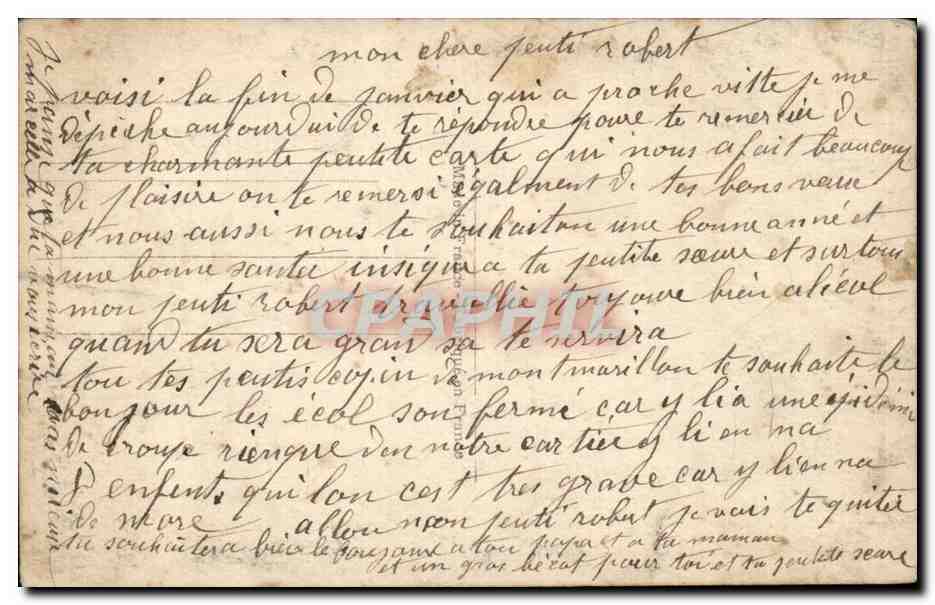 mon chere penti robert
voisi la fin de janvier qui a proche vitte je me
dépèche aujourdui de te répondre poure te remercié de
ta charmante peutite carte qui nous a fait beaucoup
de plaisire on te remersi égalment de tes bons veux
et nous aussi nous te souhaiton une bonne anné et
une bonne santer insique a ta peutite sœure et surtou
mon penti robert travaillie toujoure bien a lécol
quand tu sera gran sa te servira
tou tes peutis cosin de montmarillon te souhaite le
bonjour les écol son fermé car y lia une épidémie
de croupe rienque den notre cartiée y li en na
8 enfent qui lon cest tres grave car y lien na
de more allon mon penti robert je vais te quiter
tu souhaitera bien le bonjoure a ton papa et a ta maman
et un gros bécot pour toi et ta peutite seure
Je que la
marcelle
CPAPHIL